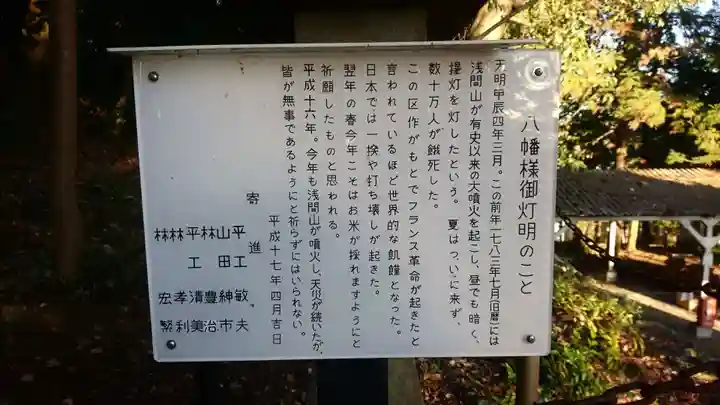 八幡様御灯明のこと
天明甲辰四年三月。この前年一七八三年七月(旧暦)には
浅間山が有史以来の大噴火を起こし、昼でも暗く、
提灯を灯したという。夏はついに来ず、
数十万人が餓死した。
この区作がもとでフランス革命が起きたと
言われているほど世界的な飢饉となった。
日本では一揆や打ち壊しが起きた。
翌年の春今年こそはお米が採れますようにと
祈願したものと思われる。
平成十六年。今年も浅間山が噴火し、天災が続いたが、
皆が無事であるようにと祈らずにはいられない。
平成十七年四月吉日
寄進
平工敏夫
山田紳市
林豊治
平工清美
林孝利
林宏